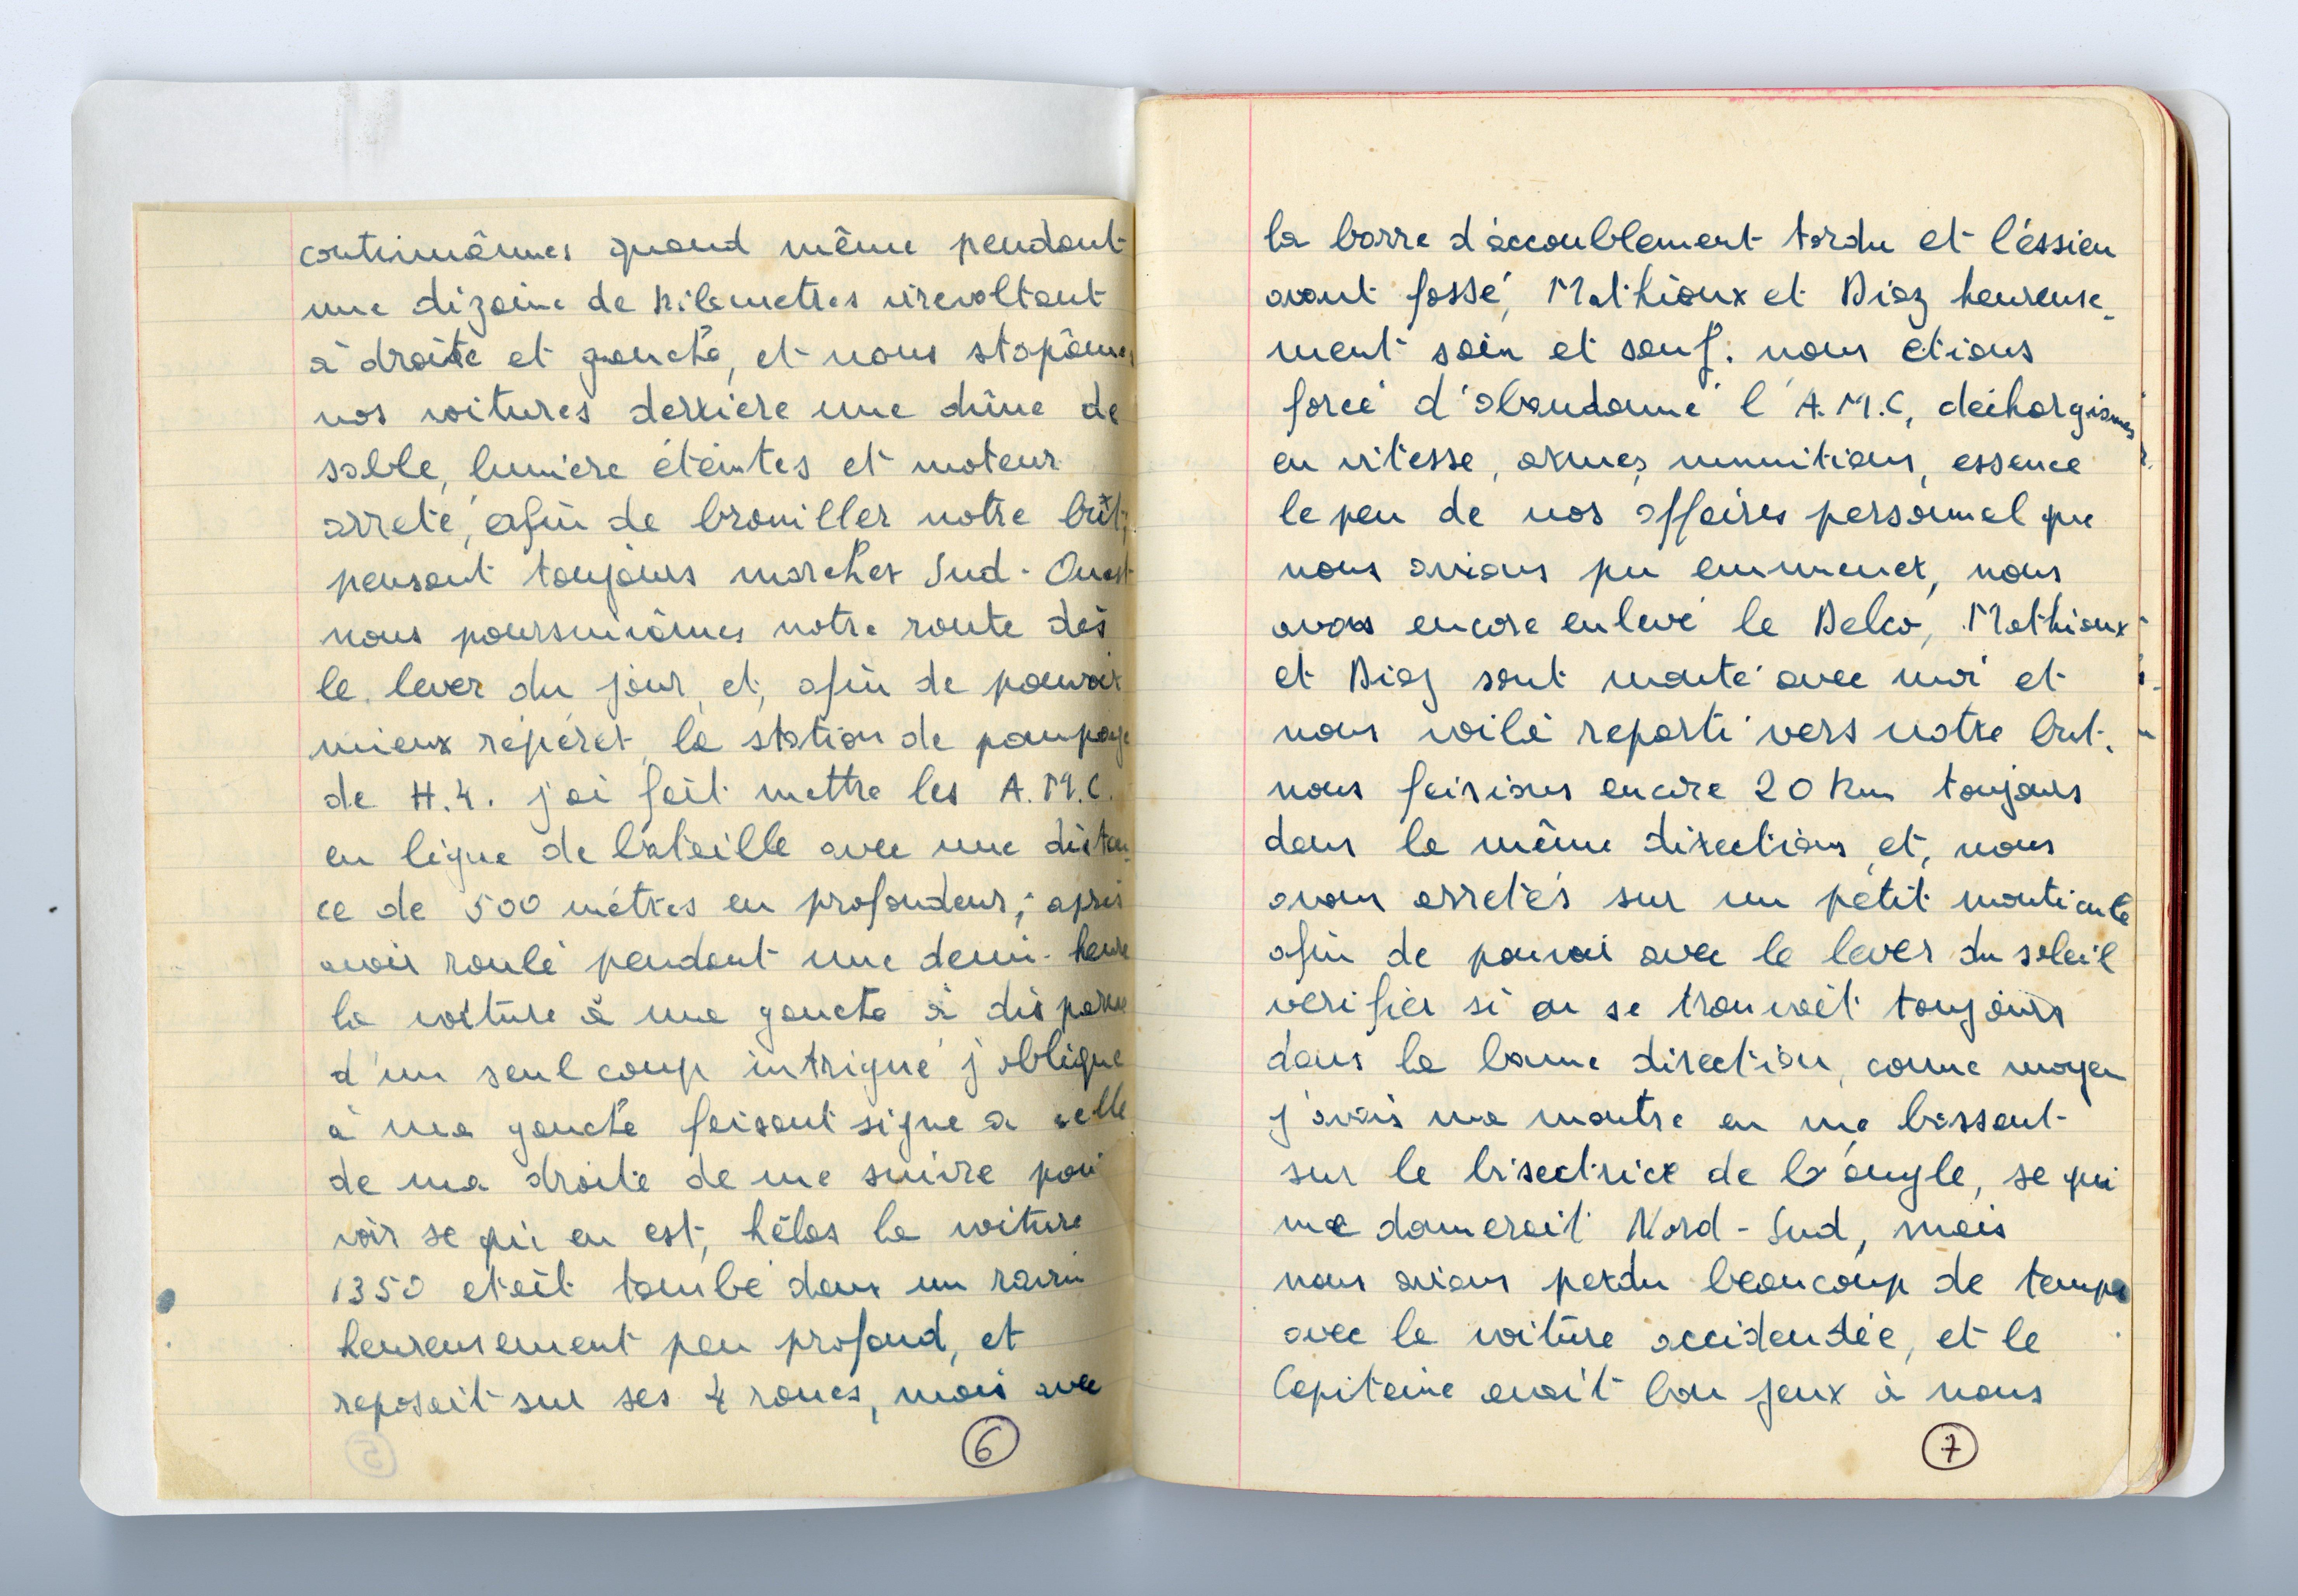 continuâmes quand même pendant
une dizaine de kilometres virevoltant
à droite et gauche, et nous stopâmes
nos voitures derrière une dûne de
sable, lumière éteintes et moteur
arreté, afin de brouiller notre but,
pensant toujours marcher Sud-Ouest
nous poursuivâmes notre route dès
le lever du jour, et, afin de pouvoir
mieux répérer la station de pompage
de H.4. j'ai fait mettre les A.M.C.
en ligne de bataille avec une distan-
ce de 500 mètres en profondeur; après
avoir roulé pendant une demi-heure
la voiture à ma gauche à disparue
d'un seul coup intrigué j'oblique
à ma gauche faisant signe a celle
de ma droite de me suivre pour
voir se qui en est, hélas la voiture
1350 etait tombé dans un ravin
heureusement peu profond, et
reposait sur ses 4 roues, mais avec
6
la barre d'accoublement tordu et l'éssieu
avant fossé, Mathioux et Diaz heureuse-
ment sain et sauf. nous etions
forcé d'abandonné l'A.M.C, déchargiames
en vitesse, armes, munitions, essence
le peu de nos affaires personnel que
nous avions pu emmener, nous
avons encore enlevé le Delco, Mathioux
et Diaz sont monté avec moi et
nous voilà reparti vers notre but.
nous faisions encore 20 Km toujours
dans la même directions, et, nous
avons arretés sur un pétit monticule
afin de pouvoi avec le lever du soleil
verifier si on se trouvait toujours
dans la bonne direction, comme moyen
j'avais ma montre en me bassant
sur le bisectrice de l'angle, se qui
me donnerait Nord-Sud, mais
nous avions perdu beaucoup de temps
avec la voiture accidendée, et le
Capitaine avait bon jeux à nous
7